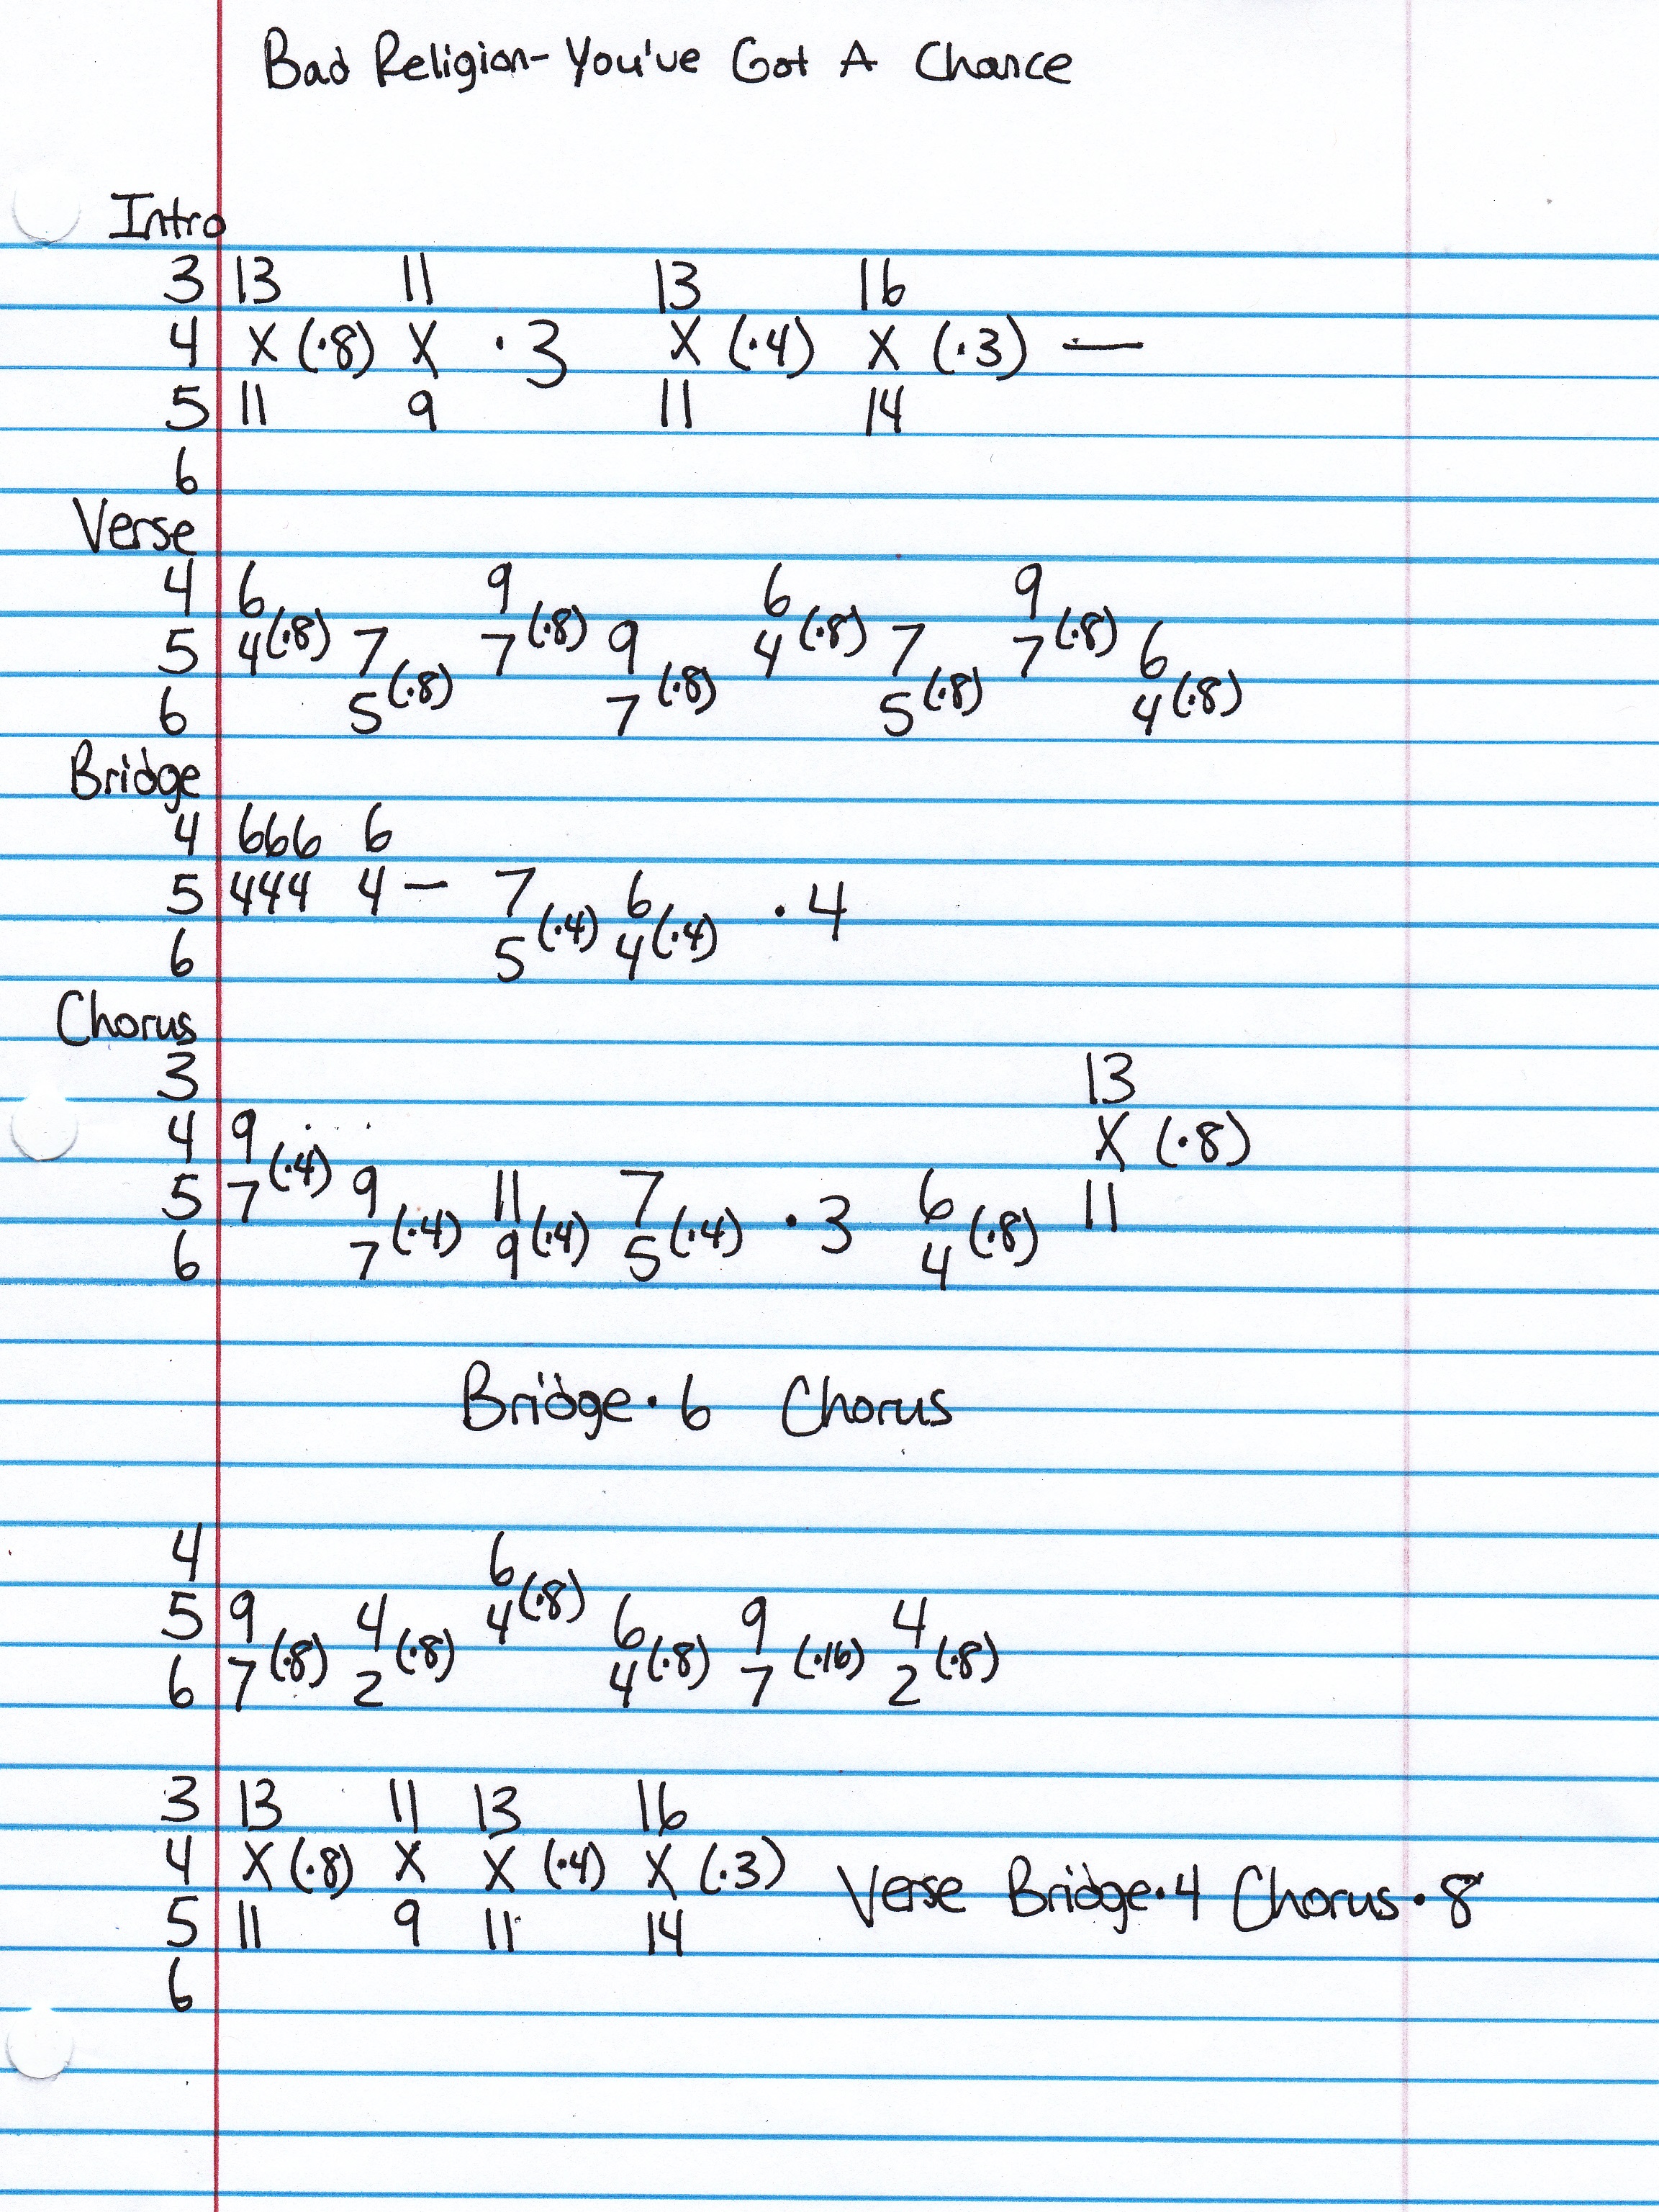 Bad Religion- You've Got A Chance
Intro
3 13 11 13 16
4 X (·8) X · 3 X (·4) X (·3) —
5 11 9 11 14
6
Verse
4 6 9 6 9
5 4(·8) 7 7(·8) 9 4(·8) 7 7(·8) 6
6 5(·8) 7(·8) 5(·8) 4(·8)
Bridge
4 666 6
5 444 4 — 7 6 · 4
6 5(·4) 4(·4)
Chorus
3 13
4 9 X (·8)
5 7(·4) 9 11 7 · 3 6 11
6 7(·4) 9(·4) 5(·4) 4(·8)
Bridge · 6 Chorus
4 6
5 9 4 4(·8) 6 9 4
6 7(·8) 2(·8) 4(·8) 7(·16) 2(·8)
3 13 11 13 16
4 X (·8) X X (·4) X (·3) Verse Bridge · 4 Chorus · 8
5 11 9 11 14
6